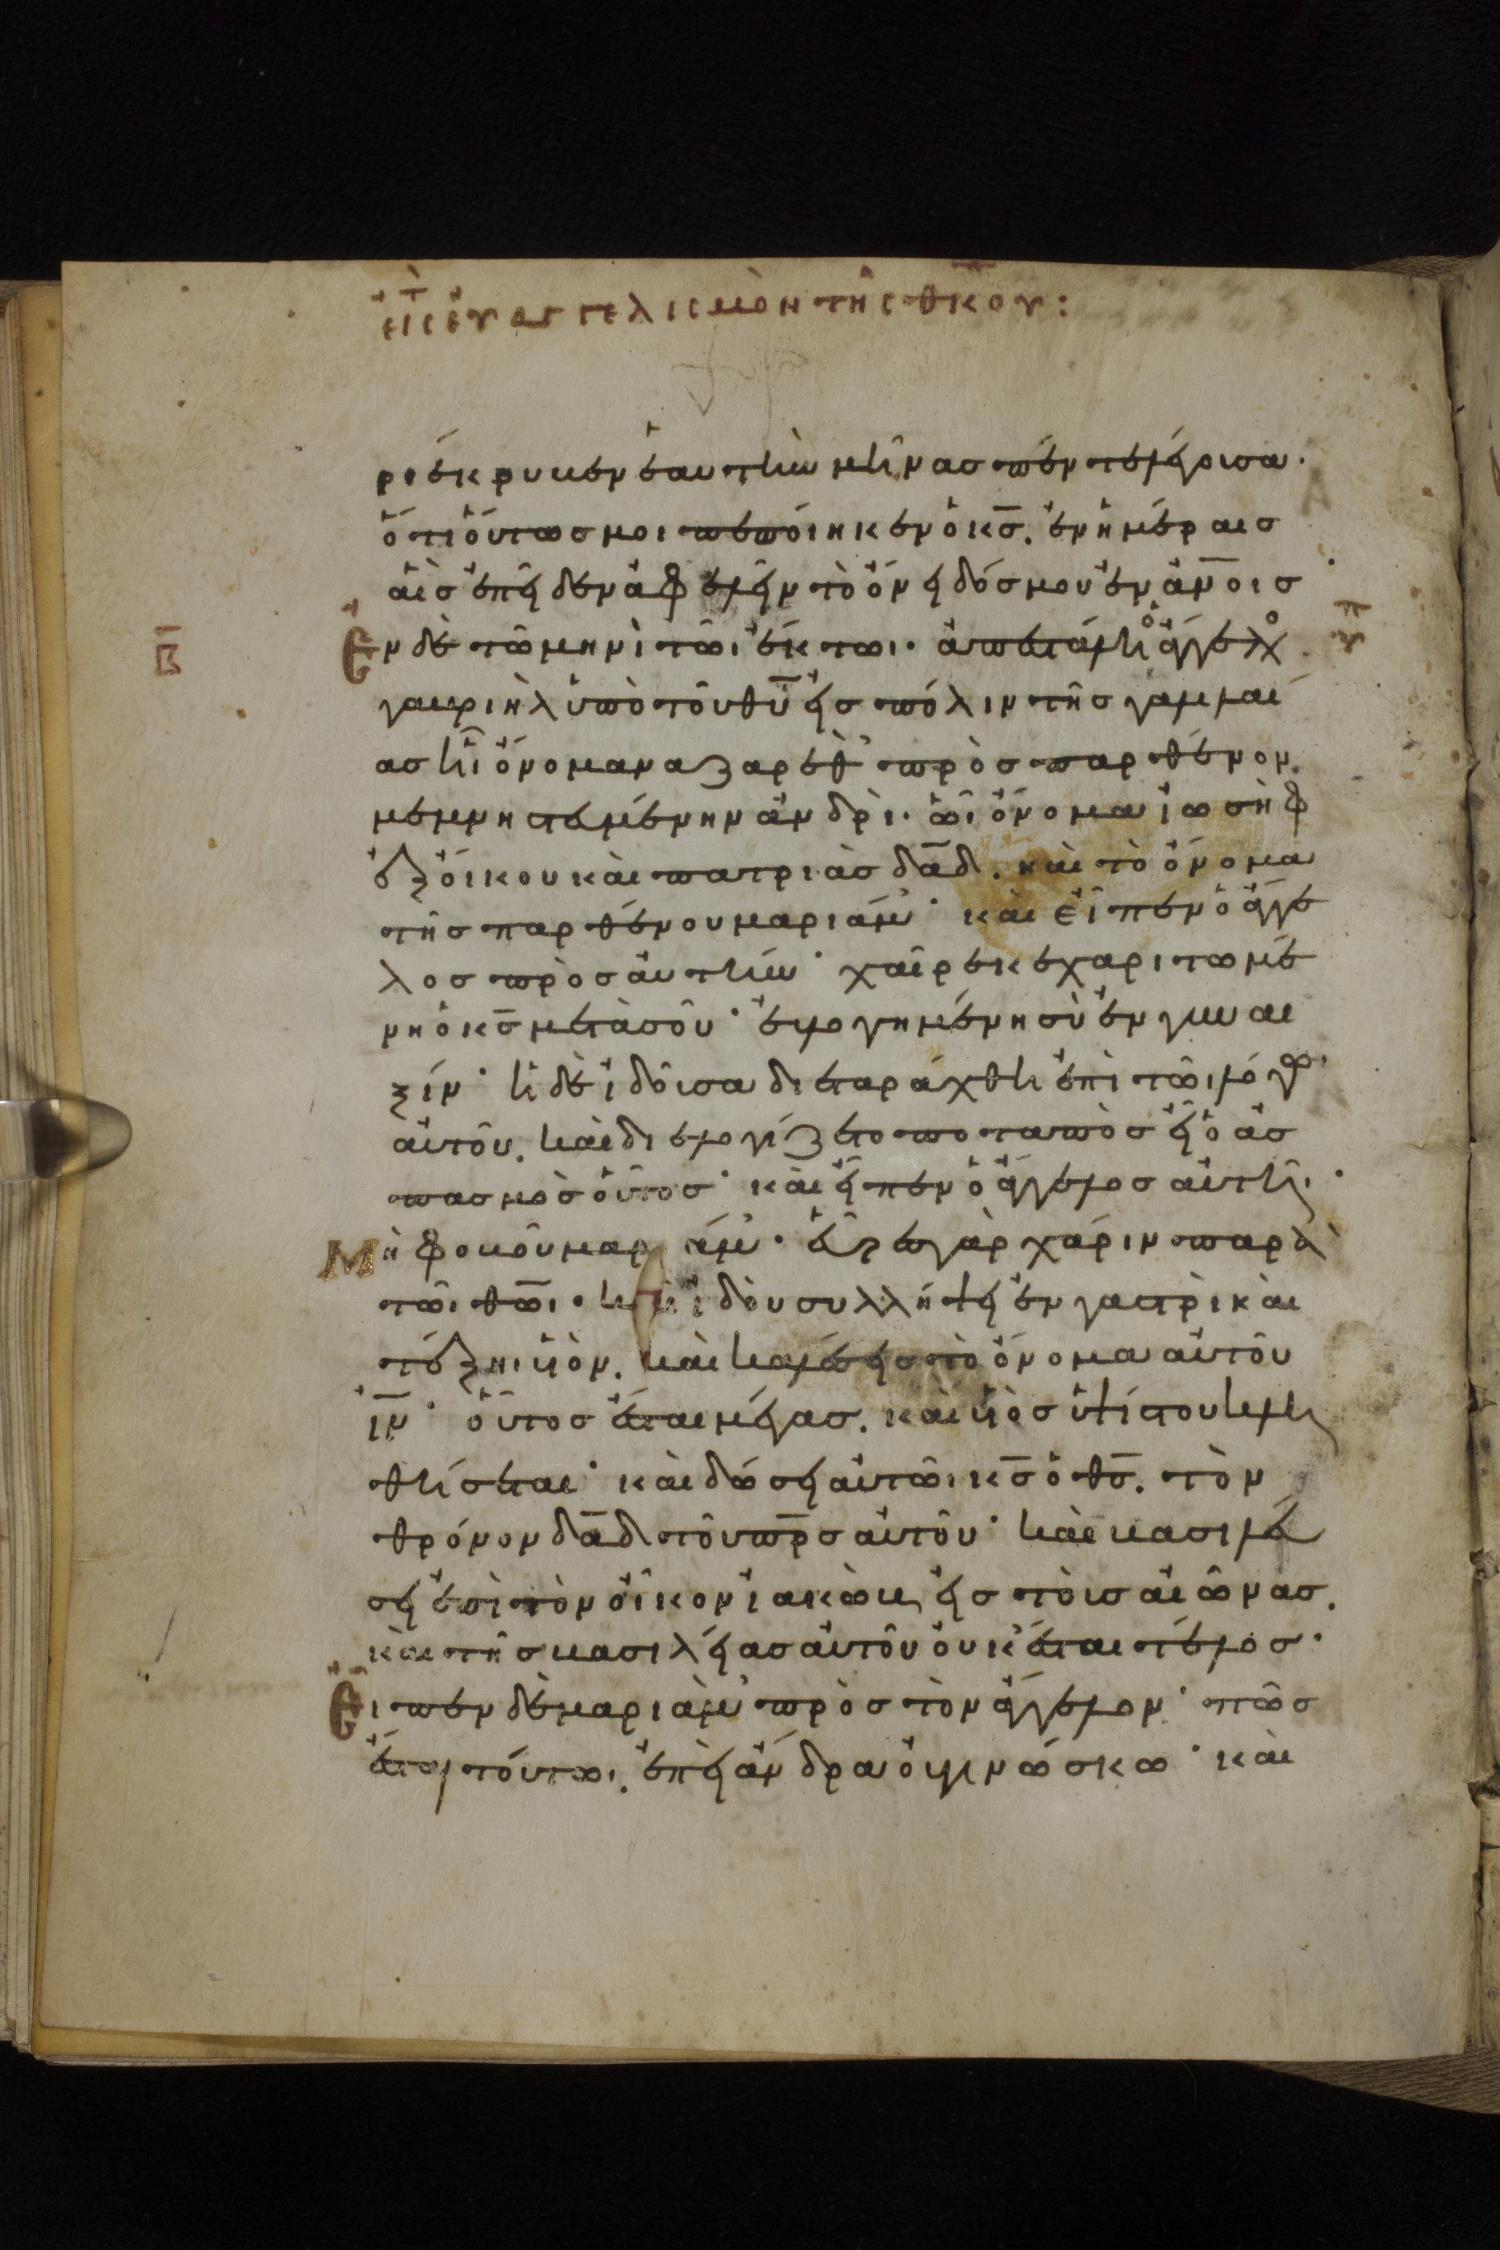 εἰς τ̄ ἐυαγγελισμὸν τῆς θ̅κου:
ριέκρυβεν ἑαυτὴν μῆνας πέντε λέγουσα·
ὅτι ὅυτως μοι πεποίηκεν ὁ κ̅ς. ἐν ἡμέραις
αἷς ἐπεῖδεν ἀφελεῖν τὸ ὄνειδός μου ἐν ἀν̅οις
β̅
Ἐν δὲ τῶ μηνὶ τῶι ἕκτωι· ἀπεστάλη ὁ ἄγγελο
γαβριὴλ ὑπὸ τοῦ θ̅υ εἰς πόλιν τῆς γαλιλαί
ας ἧι ὄνομα ναζαρέθ πρὸς παρθένον.
μεμνηστευμένην ἀνδρὶ· ὧι ὄνομα ἰωσὴφ
ἐξ ὄικου καὶ πατριὰς δα̅δ. καὶ τὸ ὄνομα
τῆς παρθένου μαριάμ· καὶ εἶπεν ὁ ἄγγε
λος πρὸς ἀυτήν· χαῖρε κεχαριτωμέ
νη ὁ κ̅ς μετὰ σοῦ· ἐυλογημένη σὺ ἐν γυναι
ξίν· ἡ δὲ ἰδοῦσα διεταράχθη ἐπὶ τῶι λόγω
ἀυτοῦ. καὶ διελογίζετο ποταπὸς εἴη ὁ ἀσ
πασμὸς ὅυτος· καὶ εἶπεν ὁ ἄγγελος ἀυτῆι·
Μὴ φοβοῦ μαριάμ· εὗρες γὰρ χάριν παρὰ
τῶι θ̅ωι· καὶ ἰδοὺ συλλήψη ἐν γαστρὶ καὶ
τέξηι υἱὸν. καὶ καλέσεις τὸ ὄνομα ἀυτοῦ
ι̅ν· οὗτος ἔσται μέγας. καὶ υἱὸς ὑψίστου κλη
θήσεται· καὶ δώσει ἀυτῶι κ̅ς ὁ θ̅ς. τὸν
θρόνον δα̅δ τοῦ π̅ρς ἀυτοῦ· καὶ βασιλεύ
σει ἐπὶ τὸν οἶκον ἰακὼβ εἰς τοὺς αἰῶνας.
καὶ τῆς βασιλείας ἀυτοῦ ὀυκ ἔσται τέλος·
Εἶπεν δὲ μαριὰμ πρὸς τὸν ἄγγελον· πῶς
ἔσται τοῦτο. ἐπεὶ ἄνδρα ὀυ γινώσκω· καὶ